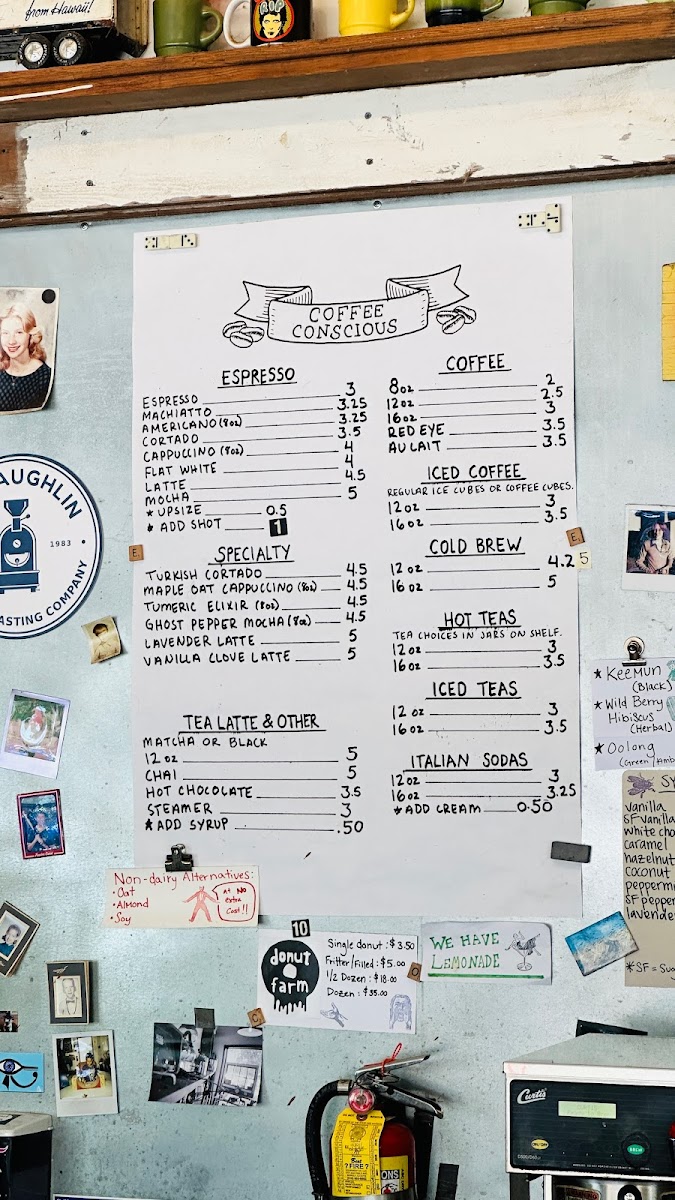 from Hawaii!
R.I.P
COFFEE
CONSCIOUS
ESPRESSO
ESPRESSO 3
MACHIATTO 3.25
AMERICANO (8oz) 3.25
CORTADO 3.5
CAPPUCCINO (8oz) 4
FLAT WHITE 4
LATTE 4.5
MOCHA 5
* UPSIZE 0.5
* ADD SHOT 1
SPECIALTY
TURKISH CORTADO 4.5
MAPLE OAT CAPPUCCINO (8oz) 4.5
TUMERIC ELIXIR (8oz) 4.5
GHOST PEPPER MOCHA (8oz) 4.5
LAVENDER LATTE 5
VANILLA CLOVE LATTE 5
TEA LATTE & OTHER
MATCHA OR BLACK
12 oz 5
CHAI 5
HOT CHOCOLATE 3.5
STEAMER 3
* ADD SYRUP .50
COFFEE
8oz 2
12oz 2.5
16oz 3
RED EYE 3.5
AU LAIT 3.5
ICED COFFEE
REGULAR ICE CUBES OR COFFEE CUBES.
12 oz 3
16 oz 3.5
COLD BREW
12 oz 4.25
16 oz 5
HOT TEAS
TEA CHOICES IN JARS ON SHELF.
12 oz 3
16 oz 3.5
ICED TEAS
12 oz 3
16 oz 3.5
ITALIAN SODAS
12oz 3
16oz 3.25
*ADD CREAM 0.50
AUGHLIN
1983
ASTING COMPANY
E
E
* Keemun
(Black)
* Wild Berry
Hibiscus
(Herbal)
* Oolong
(Green
SY
vanilla
SF vanilla
white cho
caramel
hazelnut
coconut
pepperm
SF pepper
lavender
*SF = Sug
Non-dairy Alternatives:
• Oat
• Almond
• Soy
at NO
extra
cost!!
10
donut
farm
Single donut : $3.50
Fritter/Filled : $5.00
1/2 Dozen : $18.00
Dozen : $35.00
O
C
WE HAVE
LEMONADE
?FIRE?
Curtis
BREW